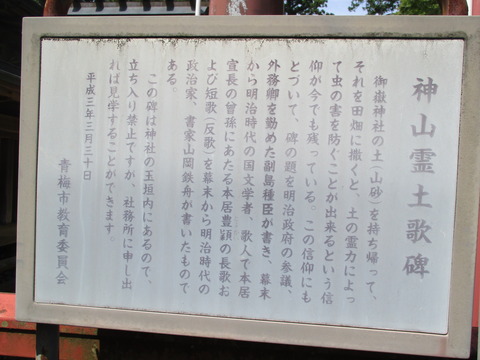 神山霊土歌碑
御嶽神社の土（山砂）を持ち帰って、
それを田畑に撒くと、土の霊力によっ
て虫の害を防ぐことが出来るという信
仰が今でも残っている。この信仰にも
とづいて、碑の題を明治政府の参議、
外務卿を勤めた副島種臣が書き、幕末
から明治時代の国文学者、歌人で本居
宣長の曾孫にあたる本居豊穎の長歌お
よび短歌（反歌）を幕末から明治時代の
政治家、書家山岡鉄舟が書いたもので
ある。
この碑は神社の玉垣内にあるので、
立ち入り禁止ですが、社務所に申し出
れば見学することができます。
平成三年三月三十日
青梅市教育委員会